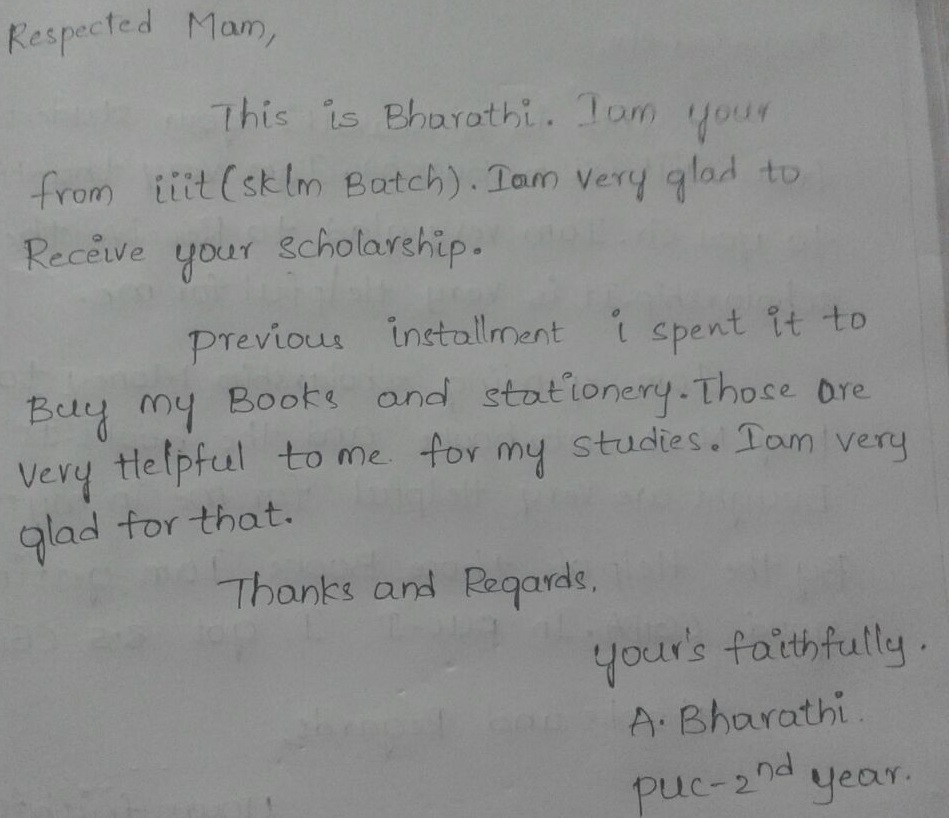 Respected Mam,
This is Bharathi. Iam your
from iiit (sklm Batch). Iam very glad to
Receive your scholarship.
previous installment i spent it to
Buy my Books and stationery. Those are
very Helpful to me for my studies. Iam very
glad for that.
Thanks and Regards,
your's faithfully.
A. Bharathi.
puc-2nd year.